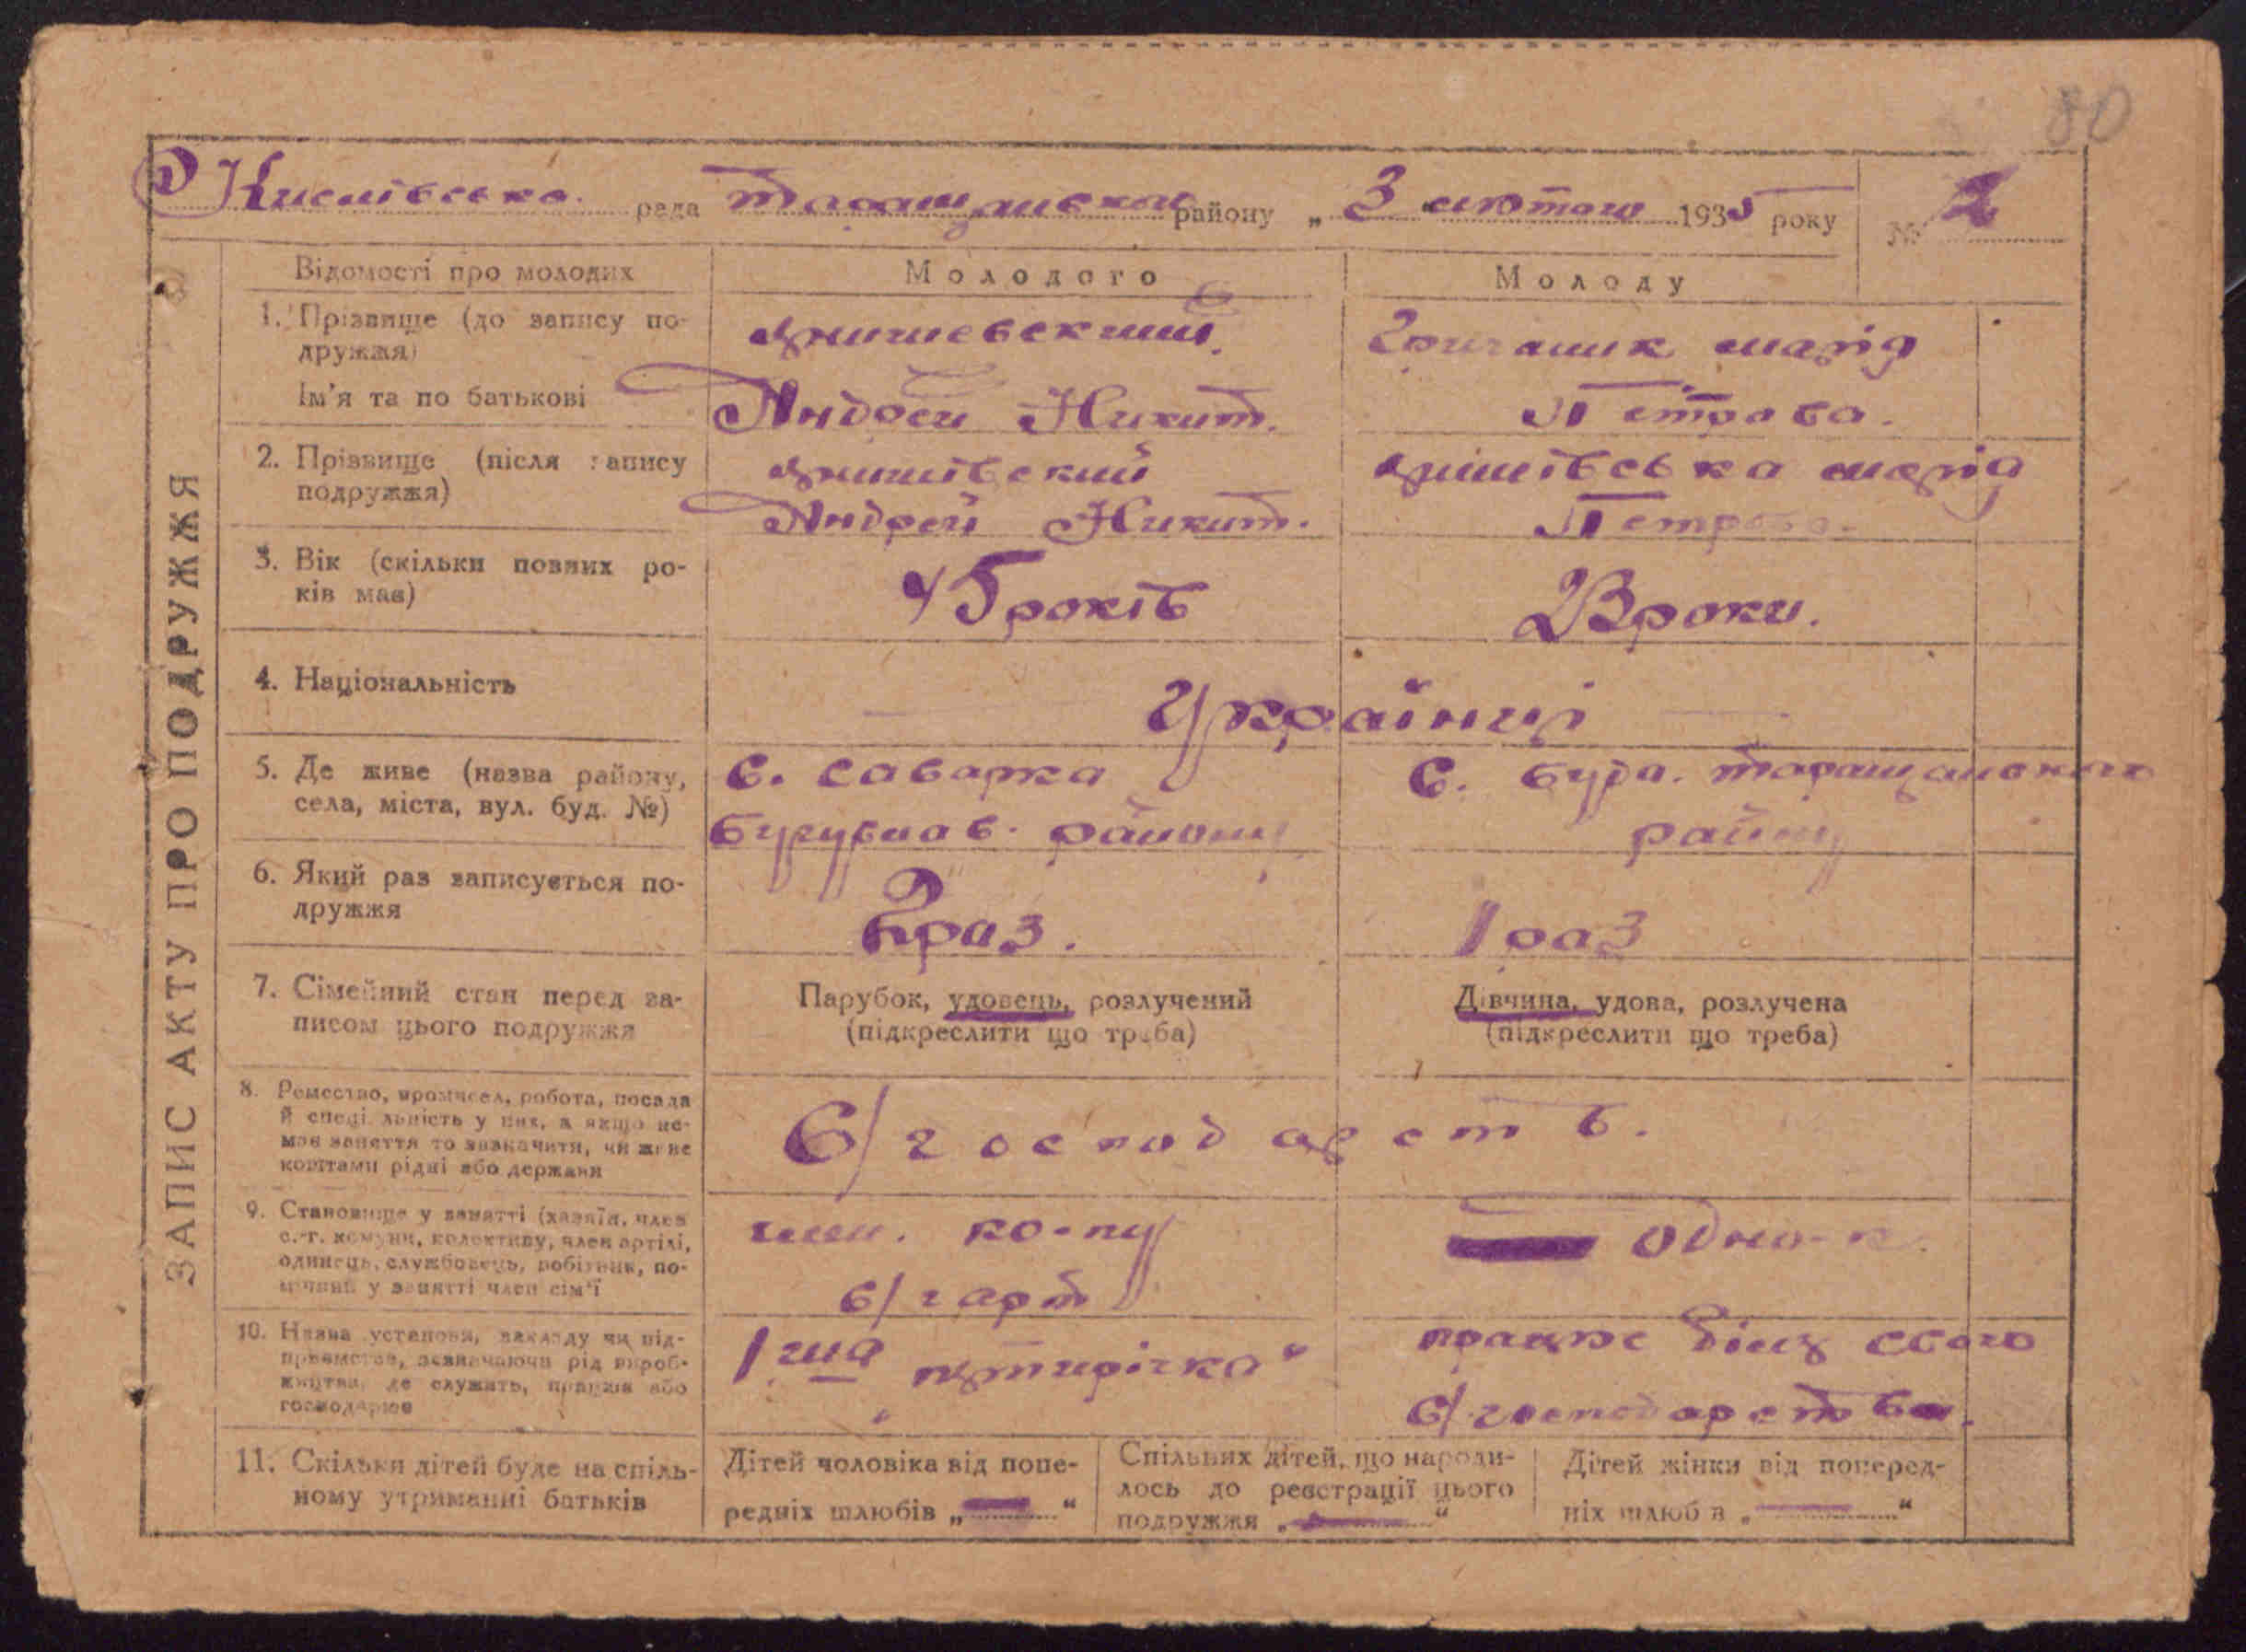 80
Кислівська рада Таращанського району „3 лютого 1935 року № 2
ЗАПИС АКТУ ПРО ПОДРУЖЖЯ
Відомості про молодих
Молодого
Молоду
1. Прізвище (до запису по-
дружжя)
Ім'я та по батькові
Марія
Андрей Никит.
Петрова.
2. Прізвище (після запису
подружжя)
Марія
Андрей Никит.
Петрова.
3. Вік (скільки повних ро-
ків має)
45 років
23 роки.
4. Національність
Українці
5. Де живе (назва району,
села, міста, вул. буд. №)
с. Саварка
району
с. Буда. Таращанского
району
6. Який раз записується по-
дружжя
2 раз.
1 раз
7. Сімейний стан перед за-
писом цього подружжя
Парубок, удовець, розлучений
(підкреслити що треба)
Дівчина, удова, розлучена
(підкреслити що треба)
8. Ремество, промисел, робота, посада
й спеціальність у них, а якщо не-
має заняття то зазначити, чи живе
коштами рідні або держави
С/господарств.
9. Становище у занятті (хазяїн, член
с.-г. комуни, колективу, член артілі,
одинець, службовець, робітник, по-
мічний у занятті член сім'ї
член. ко-пу
с/г арт
одно-к.
10. Назва установи, закладу чи під-
приємства, зазначаючи рід вироб-
ництва, де служить, працює або
господарює
1ша „пятирічка“
працює біля свого
с/господарства.
11. Скільки дітей буде на спіль-
ному утриманні батьків
Дітей чоловіка від попе-
редніх шлюбів „—“
Спільних дітей, що народи-
лось до реєстрації цього
подружжя „—“
Дітей жінки від поперед-
ніх шлюбів „—“